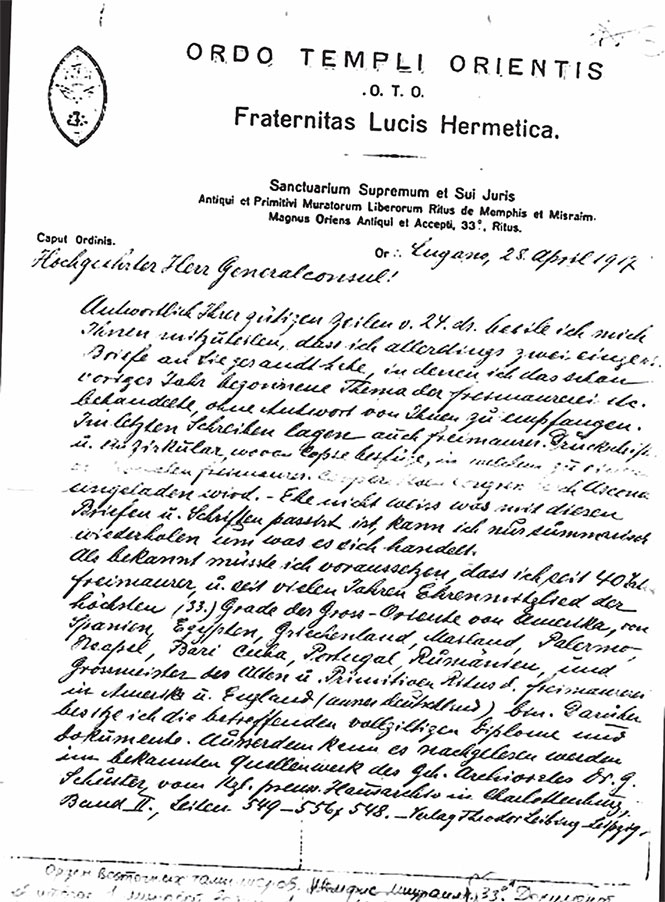 ORDO TEMPLI ORIENTIS
.O. T. O.
Fraternitas Lucis Hermetica.
Sanctuarium Supremum et Sui Juris
Antiqui et Primitivi Muratorum Liberorum Ritus de Memphis et Misraim.
Magnus Oriens Antiqui et Accepti, 33°, Ritus.
Caput Ordinis.
Or ∴ Lugano, 28. April 1917
Hochgeehrter Herr Generalconsul!
Antwortlich Ihrer gütigen Zeilen v. 24. ds. beeile ich mich
Ihnen mitzuteilen, dass ich allerdings zwei
Briefe an Sie gesandt habe, in denen ich das schon
voriges Jahr begonnene Thema der Freimaurerei etc.
behandelte, ohne Antwort von Ihnen zu empfangen.
Im letzten Schreiben lagen auch freimaurer. Druckschrift.
u. ein Zirkular, wovon Copie beifüge, in welchem zu
freimaurer. Ascona
eingeladen wird. - Ehe nicht weiss was mit diesen
Briefen u. Schriften passirt ist, kann ich nur summarisch
wiederholen um was es sich handelt.
Als bekannt müsste ich voraussetzen, dass ich seit 40
Freimaurer, u. seit vielen Jahren Ehrenmitglied der
höchsten (33.) Grade der Gross-Oriente von Amerika, von
Spanien, Egypten, Griechenland, Mailand, Palermo,
Neapel, Bari Cuba, Portugal, Rumänien, und
Grossmeister des Alten u. Primitiven Ritus d. Freimaurerei
in Amerika u. England (ausser Deutschland) bin. Darüber
besitze ich die betreffenden vollgiltigen Diplome und
Dokumente. Ausserdem kann es nachgelesen werden
im bekannten Quellenwerk des Geh. Archivrates Dr. G.
Schuster, vom Kgl. preuss. Hausarchiv in Charlottenburg,
Band II., Seiten 549-556 548. - Verlag Theodor Leibing Leipzig.
Орден восточных тамплиеров. Мемфис Мицраим, 33° Документ